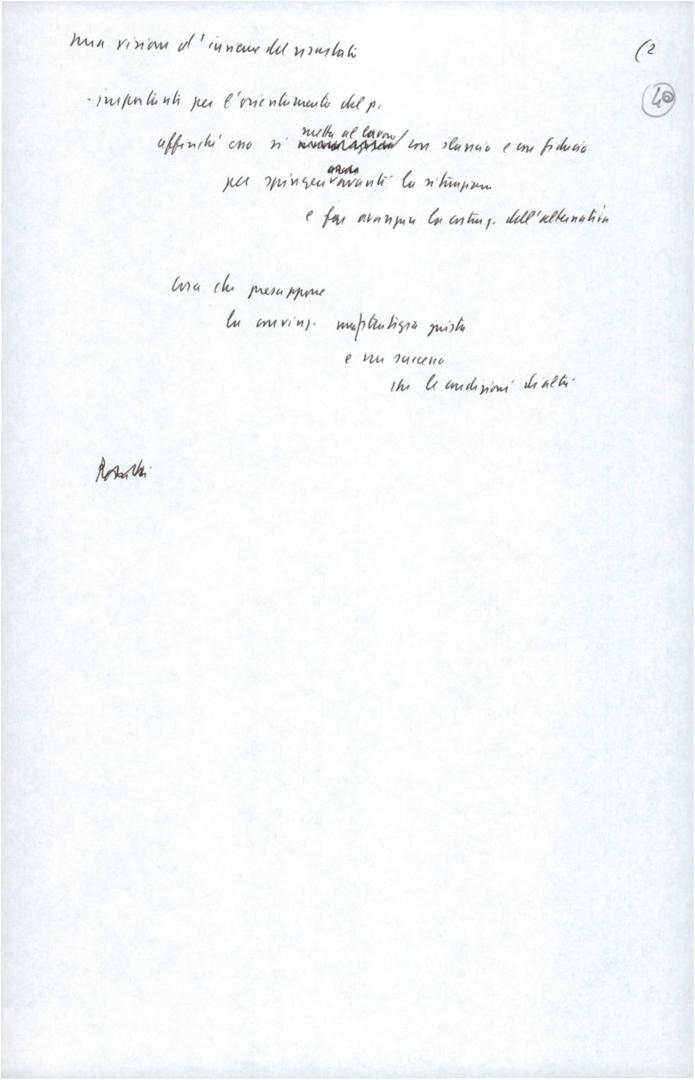 una visione d'insieme dei risultati
(2
40
- importanti per l'orientamento del p.
metta al lavoro
affinché esso si con slancio e con fiducia
per spingere avanti la situazione
e far avanzare la costruz. dell'alternativa
Cosa che presuppone
la convinz. giusta
e un successo
che le condizioni